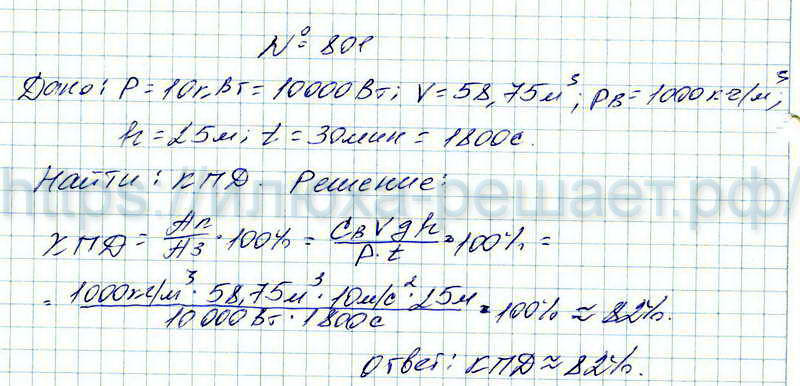 № 801
Дано: P = 10кВт = 10000Вт; V = 58,75м³; ρв = 1000кг/м³;
h = 25м; t = 30мин = 1800с.
Найти: КПД. Решение:
https://илюха-решает.рф/
КПД = Aп/Aз · 100% = CвVgh/P·t · 100% =
= 1000кг/м³ · 58,75м³ · 10м/с² · 25м / 10000Вт · 1800с · 100% ≈ 82%.
Ответ: КПД ≈ 82%.